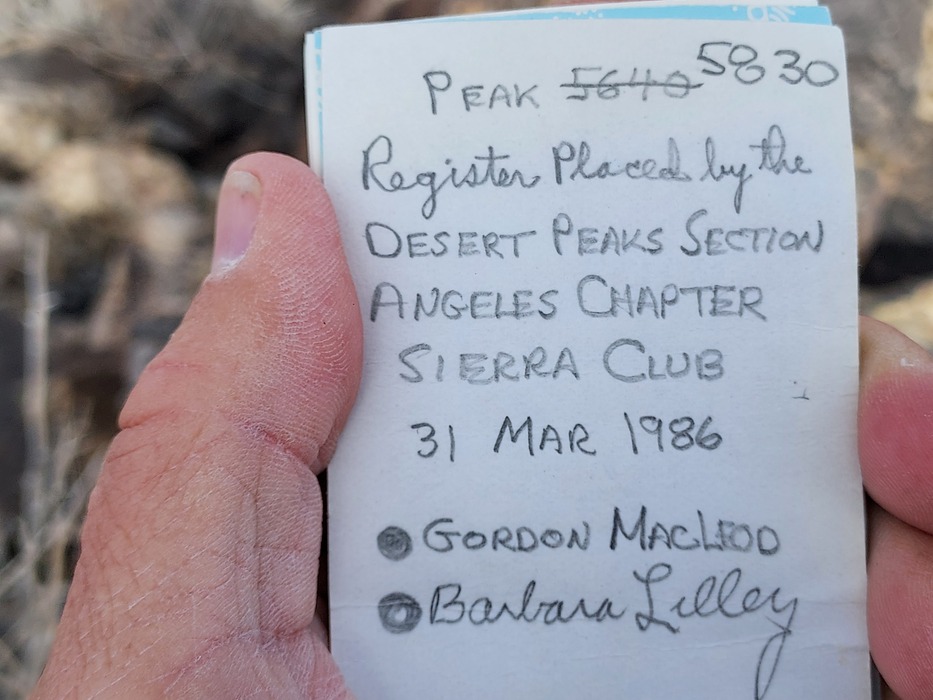 PEAK 5640 5830
Register Placed by the
DESERT PEAKS SECTION
ANGELES CHAPTER
SIERRA CLUB
31 MAR 1986
GORDON MACLEOD
Barbara Lilley